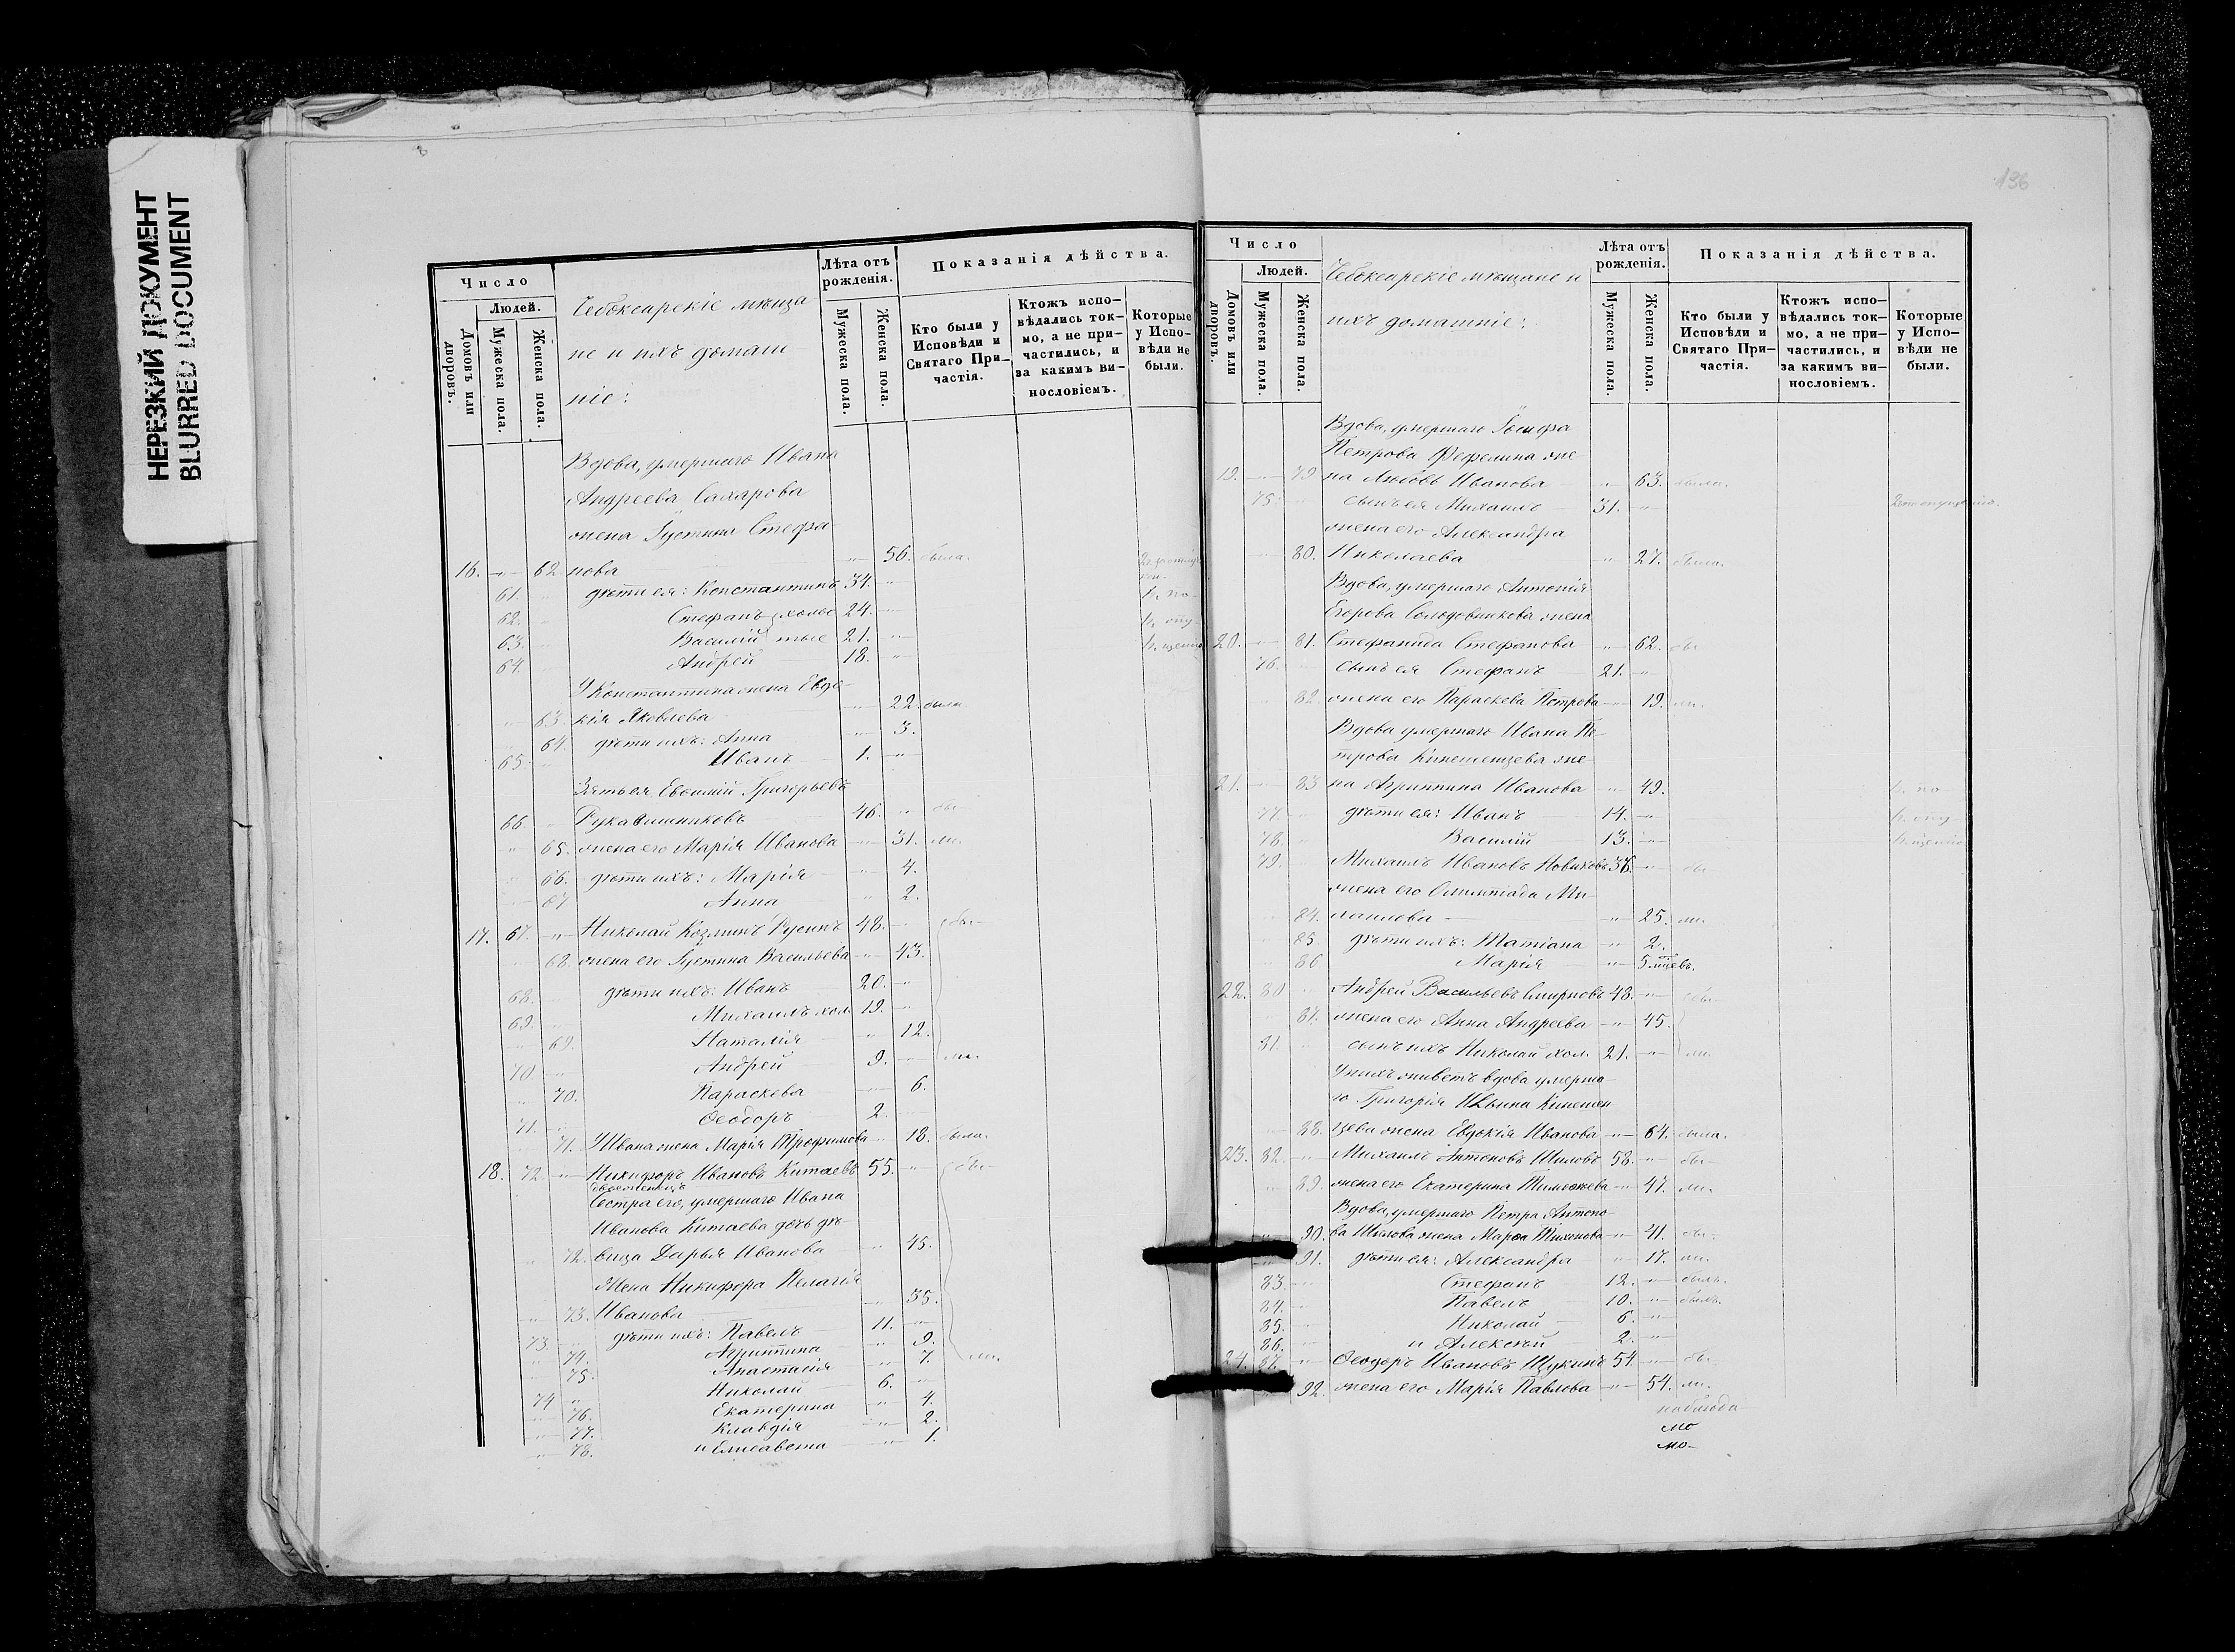 НЕРЕЗКИЙ ДОКУМЕНТ
BLURRED DOCUMENT
Число
Людей.
Домовъ или дворовъ.
Мужеска пола.
Женска пола.
Чебоксарскіе мѣща
не и ихъ домаш
ніе:
Лѣта отъ рожденія.
Мужеска пола.
Женска пола.
Показанія дѣйства.
Кто были у Исповѣди и Святаго При-частія.
Ктожъ испо-вѣдались ток-мо, а не при-частились, и за какимъ ви-нословіемъ.
Которые у Испо-вѣди не были.
Вдова, умершаго Ивана
Андреева Сахарова
жена Іустина Стефа
16. -"- 62 нова -"- 56. была.
61. дѣти ея: Константинъ 34. -"-
62. Стефанъ холос 24. -"-
63. Василій тые 21. -"-
64. Андрей 18. -"-
У Константина жена Евдо-
63. кія Яковлева -"- 22. была
64. дѣти ихъ: Анна -"- 3.
65. Иванъ 1. -"-
Зять ея Евѳимій Григорьевъ
66. Рукавишниковъ 46. " бы-
" 65. жена его Марія Иванова -"- 31. ли.
" 66. дѣти ихъ: Марія -"- 4.
67 Анна " 2.
17. 67. -"- Николай Козминъ Русинъ 48. -"- бы-
68. жена его Іустина Васильева -"- 43.
68. дѣти ихъ: Иванъ 20. -"-
69. Михаилъ хол 19. -"-
" 69. Наталія " 12.
70 Андрей 9. -"- ли.
" 70. Параскева -"- 6.
71. Ѳеодоръ 2.
71. У Ивана жена Марія Трофимова " 18. была.
18. 72 -"- Никифоръ Ивановъ Китаевъ 55. -"- бы-
двоеженецъ
Сестра его, умершаго Ивана
Иванова Китаева дочь дѣ-
" 72. вица Дарья Иванова " 45.
Жена Никифора Пелагія
" 73. Иванова -"- 35.
73. дѣти ихъ: Павелъ 11. -"-
74. Агриппина " 9.
75. Анастасія " 7. ли.
74 " Николай 6. -"-
76. Екатерина -"- 4.
77. Клавдія -"- 2.
" 78. и Елисавета -"- 1.
136
Число
Людей.
Домовъ или дворовъ.
Мужеска пола.
Женска пола.
Чебоксарскіе мѣщане и
ихъ домашніе:
Лѣта отъ рожденія.
Мужеска пола.
Женска пола.
Показанія дѣйства.
Кто были у Исповѣди и Святаго При-частія.
Ктожъ испо-вѣдались ток-мо, а не при-частились, и за какимъ ви-нословіемъ.
Которые у Испо-вѣди не были.
Вдова, умершаго Іосифа
Петрова Фефелина же
19. -"- 79 на Любовь Иванова -"- 63. была.
75. сынъ ея Михаилъ 31. -"-
жена его Александра
80. Николаева " 27. была.
Вдова, умершаго Антонія
Егорова Солодовникова жена
20. -"- 81. Стефанида Стефанова -"- 62. бы
76. сынъ ея Стефанъ 21. -"-
82. жена его Параскева Петрова -"- 19. ли.
Вдова умершаго Ивана Пе-
трова Кинешемцева же
21. -"- 83 на Агриппина Иванова -"- 49.
77. дѣти ея: Иванъ 14. -"-
78. Василій 13. -"-
79. Михаилъ Ивановъ Новиковъ 36. -"- бы-
жена его Олимпіада Ми-
84. хаилова -"- 25. ли.
85 дѣти ихъ: Татіана -"- 2.
86 Марія -"- 5. мцевъ.
22. 80 Андрей Васильевъ Смирновъ 48. -"- бы-
87. жена его Анна Андреева -"- 45.
81. сынъ ихъ Николай хол. 21. -"- ли.
У нихъ живетъ вдова умерша-
го Григорія Ильина Кинешем
88. цева жена Евдокія Иванова -"- 64. была.
23. 82. -"- Михаилъ Антоновъ Шиловъ 58. -"- бы-
89. жена его Екатерина Тимоѳеева -"- 47. ли.
Вдова, умершаго Петра Антоно-
90. ва Шилова жена Марѳа Тихонова -"- 41. бы-
91. дѣти ея: Александра " 17. ли.
83. Стефанъ 12. -"- былъ.
84. Павелъ 10. -"- былъ.
85. Николай 6. -"-
86. и Алексѣй 2. -"-
24. 87. -"- Ѳеодоръ Ивановъ Щукинъ 54. -"- бы-
92. жена его Марія Павлова -"- 54. ли.